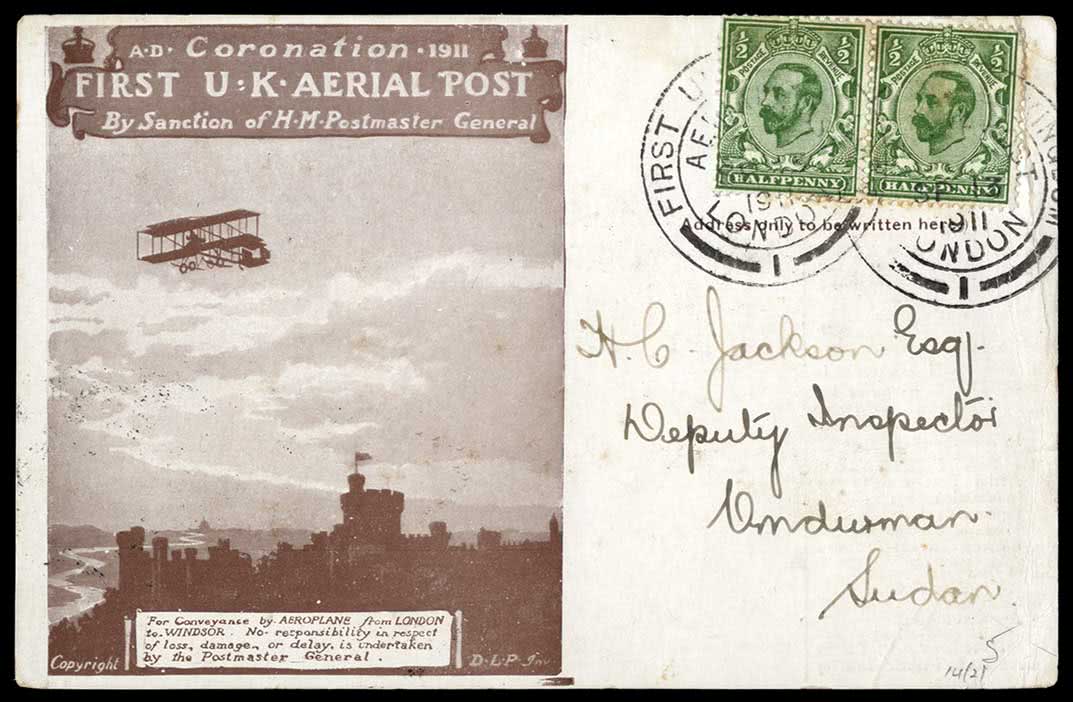 A·D· Coronation · 1911
FIRST U·K·AERIAL POST
By Sanction of H·M·Postmaster General
For Conveyance by AEROPLANE from LONDON
to WINDSOR. No responsibility in respect
of loss, damage, or delay, is undertaken
by the Postmaster General.
Copyright
D·L·P· Inv
½ ½
POSTAGE REVENUE
HALFPENNY
½ ½
POSTAGE REVENUE
HALFPENNY
FIRST U
AE
1911
LONDO
1
SP
1911
LONDON
1
Address only to be written here
H. C. Jackson Esq.
Deputy Inspector
Omdurman
Sudan.
5
14/21